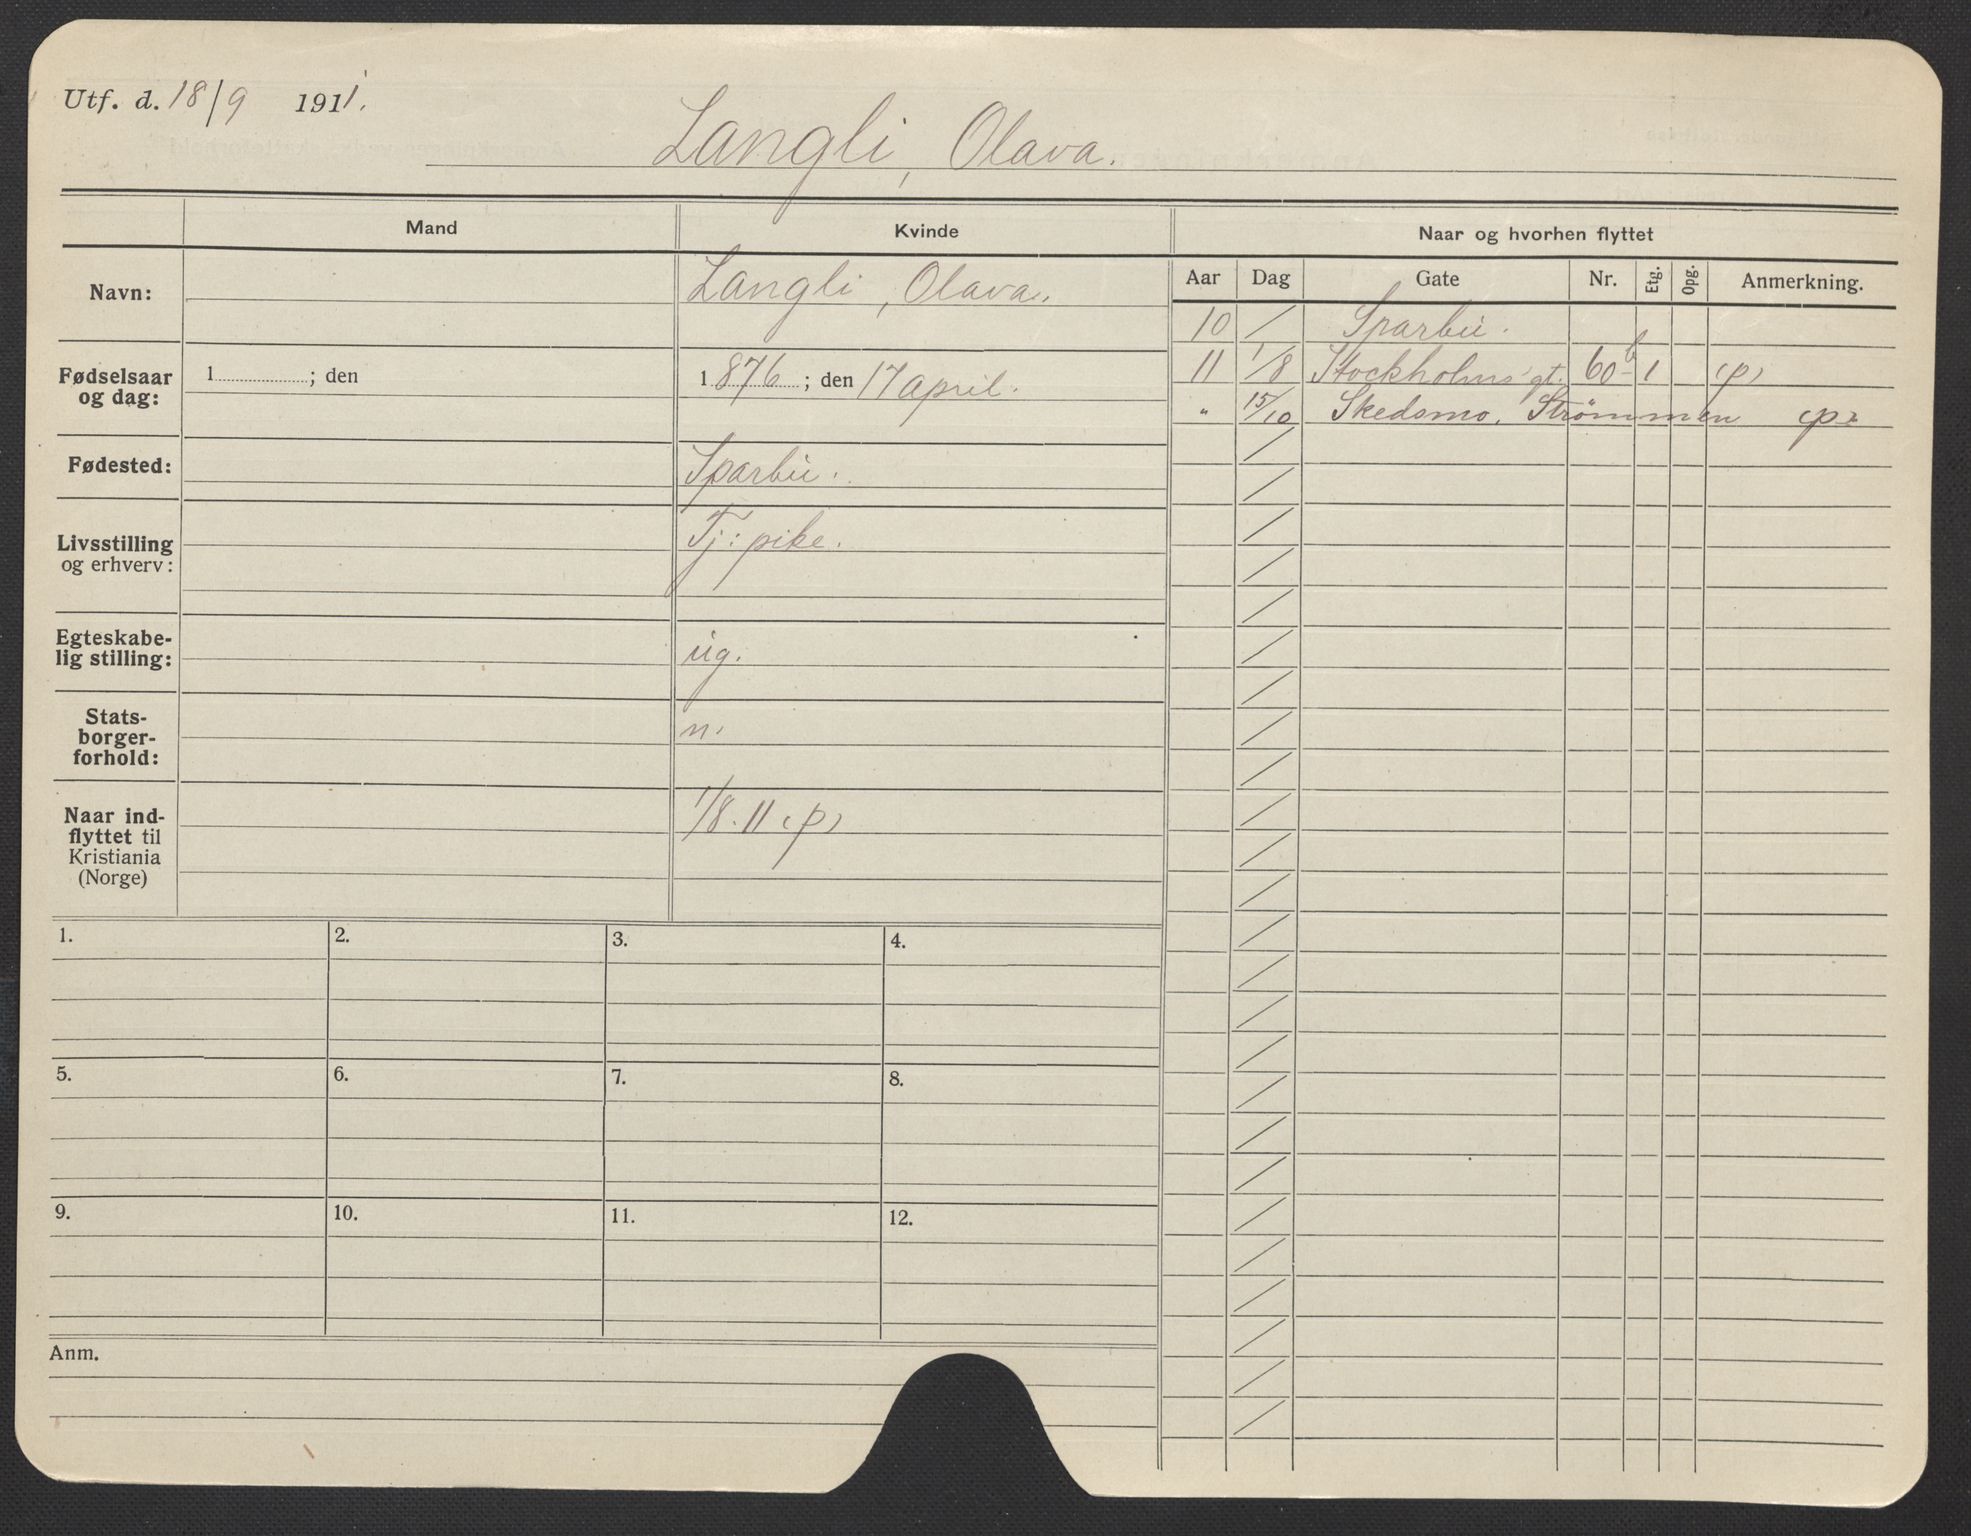 Utf. d. 18/9 1911.
Langli, Olava.
Mand
Kvinde
Naar og hvorhen flyttet
Navn:
Langli, Olava.
Aar Dag Gate Nr. Etg. Opg. Anmerkning.
10 / Sparbu.
Fødselsaar
og dag:
1 ; den
1876 ; den 17 april.
11 1/8 Stockholmsgt. 60b 1 (p)
" 15/10 Skedsmo, Strømmen (p)
Fødested:
Sparbu.
Livsstilling
og erhverv:
Tj: pike.
Egteskabe-
lig stilling:
ug.
Stats-
borger-
forhold:
n.
Naar ind-
flyttet til
Kristiania
(Norge)
1/8. 11 (p)
1. 2. 3. 4.
5. 6. 7. 8.
9. 10. 11. 12.
Anm.